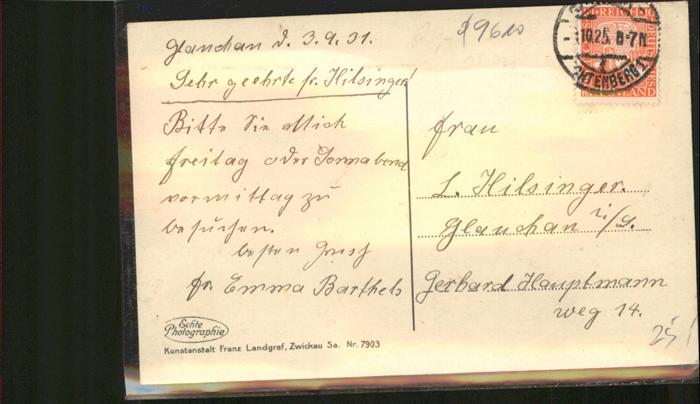 Glauchau d. 3.9.31.
Sehr geehrte fr. Hilsinger!
Bitte Sie mich
freitag oder Sonnabend
vormittag zu
besuchen.
besten Gruß
fr. Emma Barthels
Echte
Photographie
Kunstanstalt Franz Landgraf, Zwickau Sa. Nr. 7903
Frau
L. Hilsinger.
Glauchau i/S.
Gerhard Hauptmann
weg 14.
10.25. 8-7N
LICHTENBERG 1
25